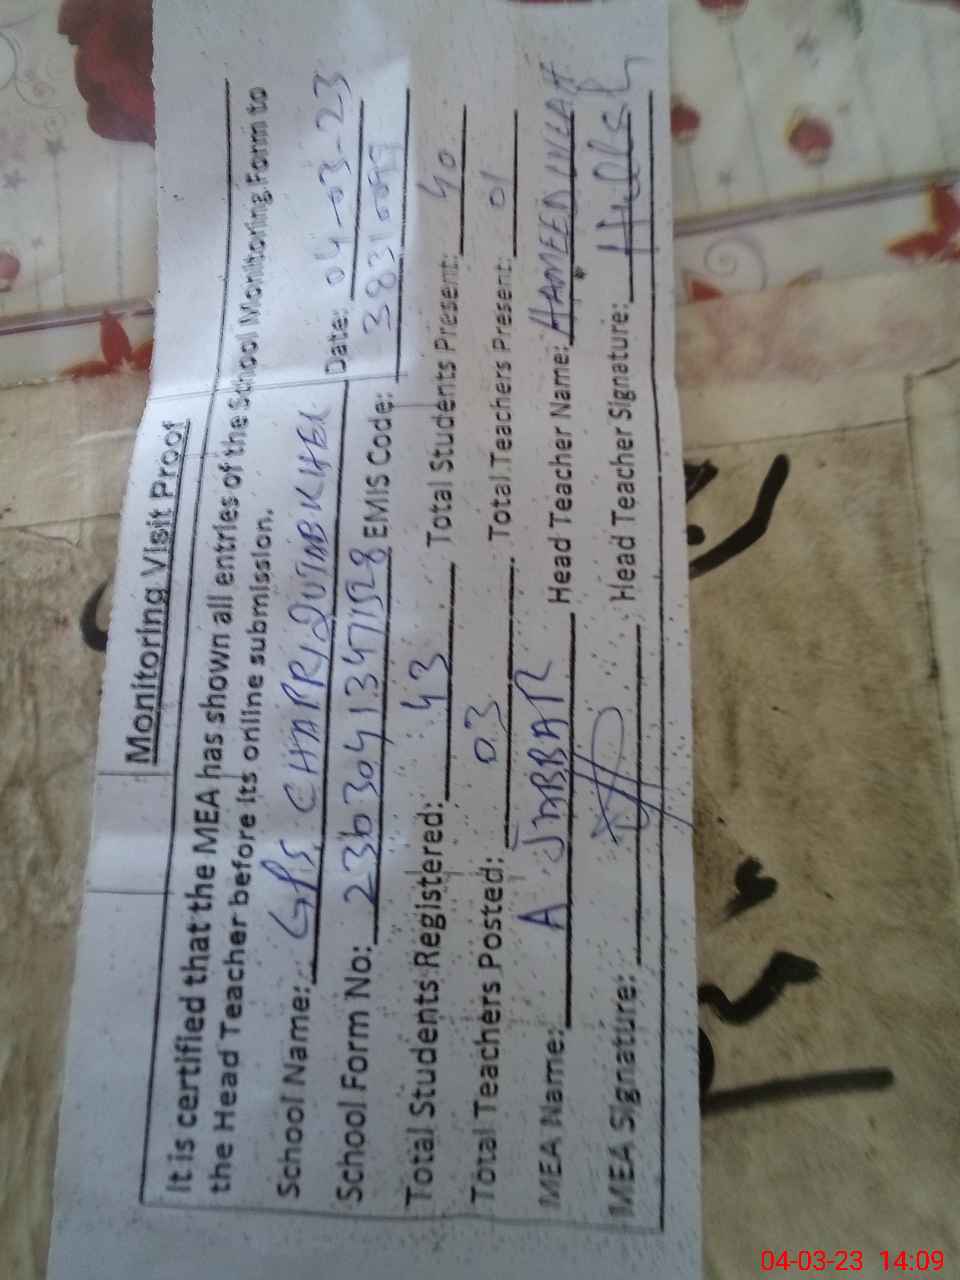 Monitoring Visit Proof
It is certified that the MEA has shown all entries of the School Monitoring Form to
the Head Teacher before its online submission.
School Name: GPS CHAPRI QUTABKHEL Date: 04-03-23
School Form No: 23b30413471528 EMIS Code: 3831
Total Students Registered: 43 Total Students Present: 40
Total Teachers Posted: 03 Total Teachers Present: 01
MEA Name: A JABBAR Head Teacher Name: HAMEEDULLAH
MEA Signature: Head Teacher Signature:
04-03-23 14:09